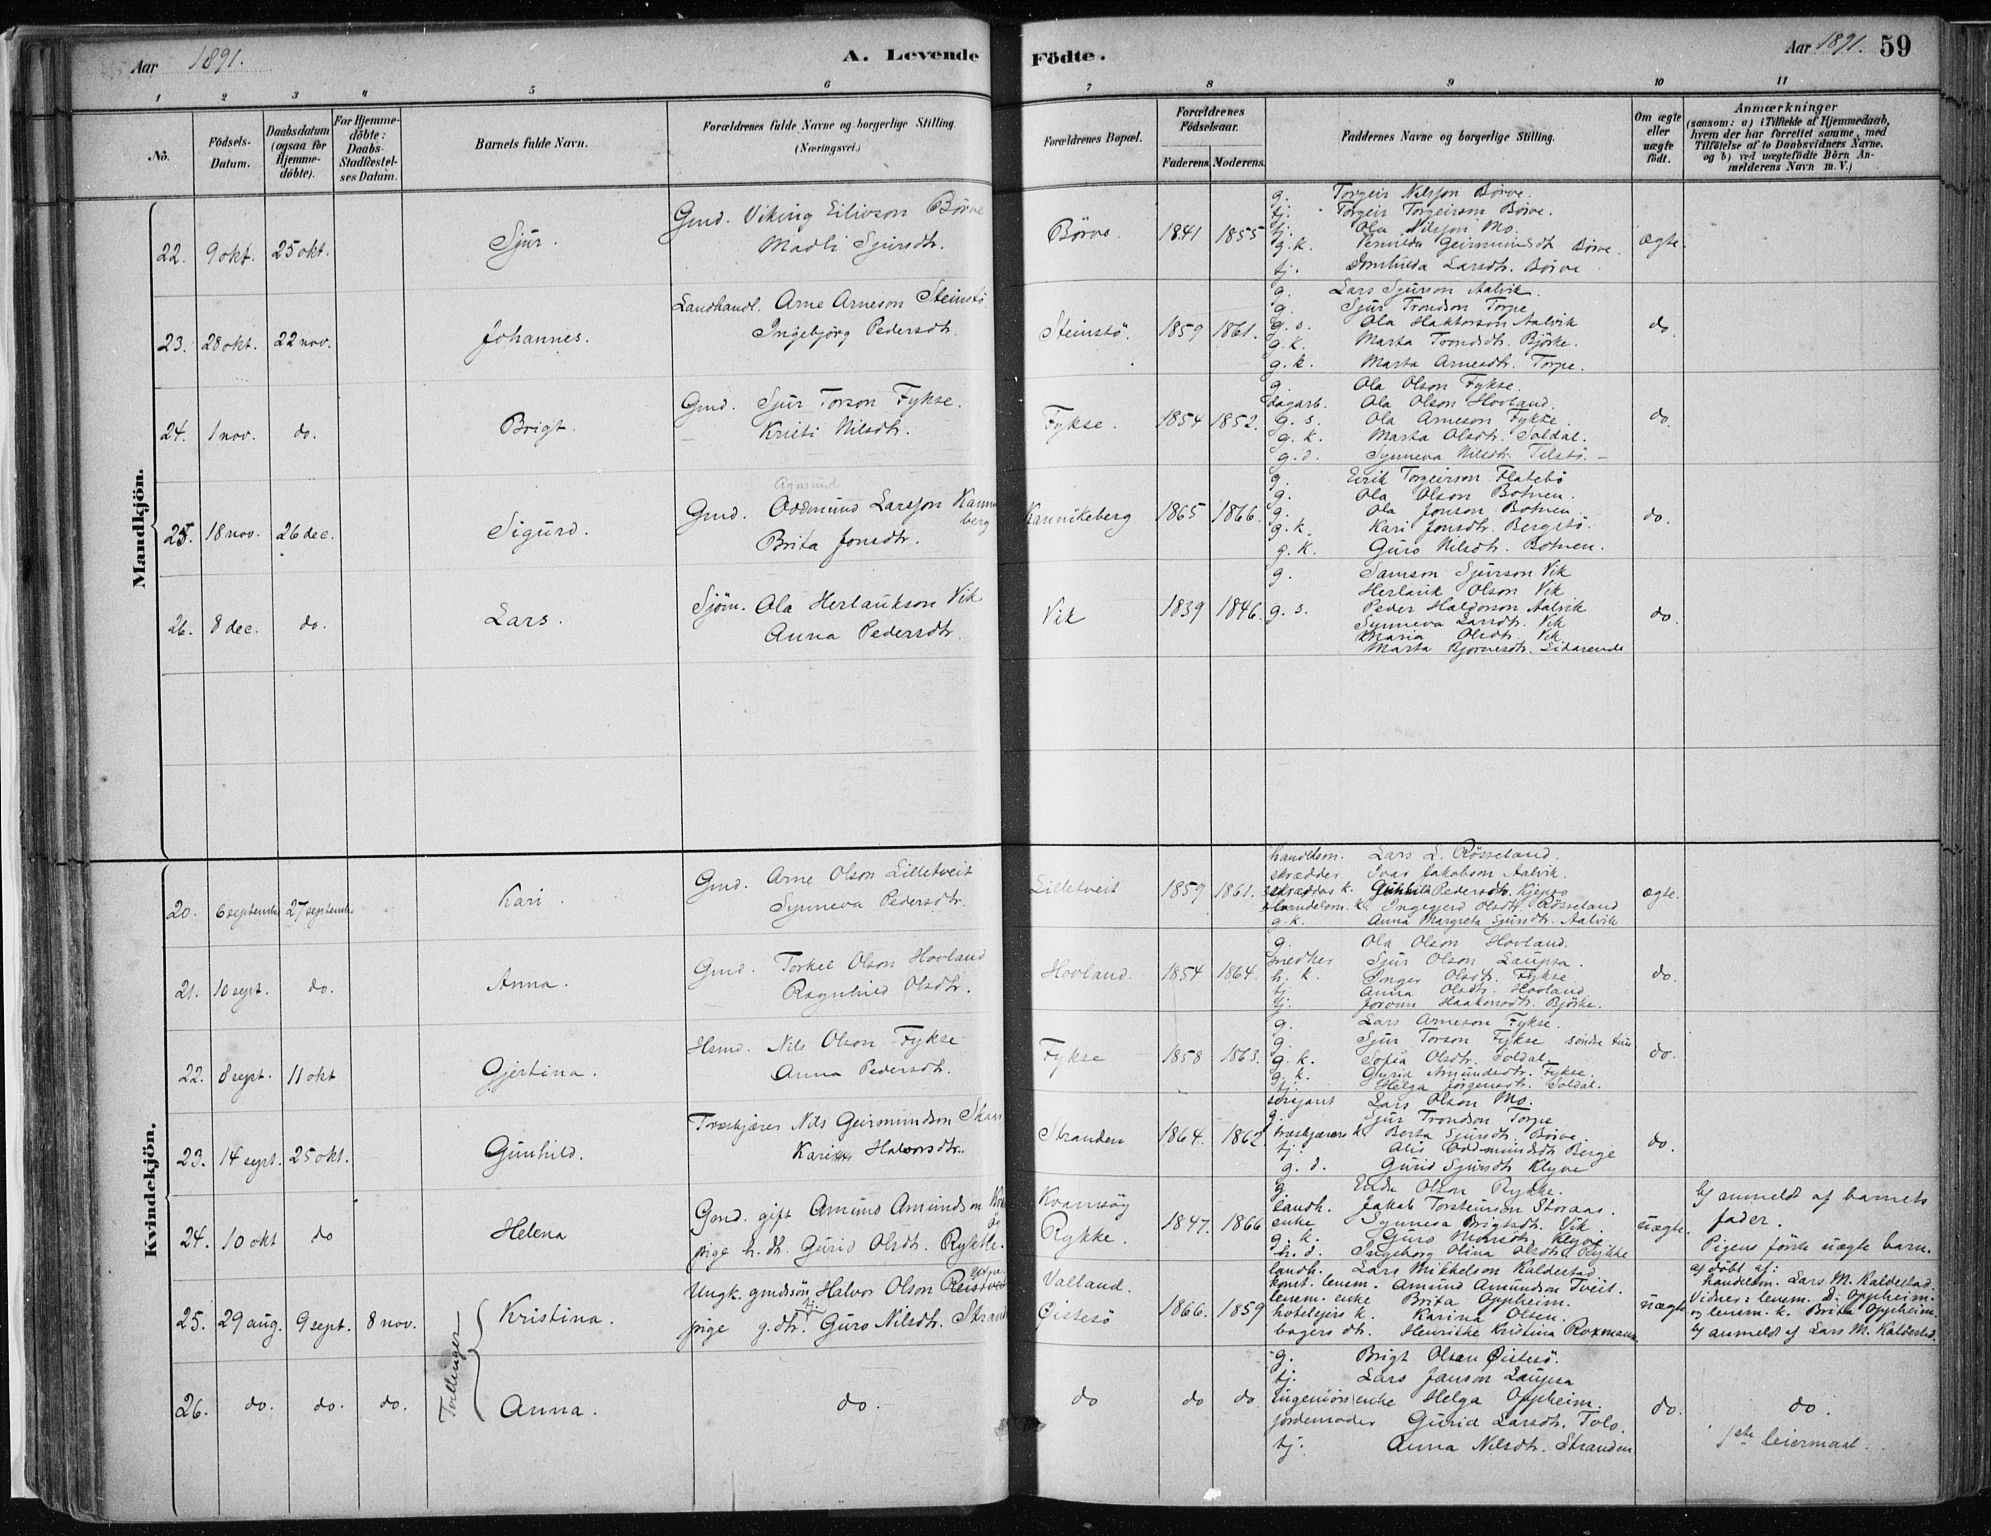 Aar 1891.
A. Levende Födte.
Aar 1891. 59
1 2 3 4 5 6 7 8 9 10 11
No.
Födsels-Datum.
Daabsdatum (ogsaa for Hjemme-döbte).
For Hjemme-döbte: Daabs-Stadfestel-ses Datum.
Barnets fulde Navn.
Forældrenes fulde Navne og borgerlige Stilling. (Næringsvei.)
Forældrenes Bopæl.
Forældrenes Födselsaar.
Faderens. Moderens.
Faddernes Navne og borgerlige Stilling.
Om ægte eller uægte födt.
Anmærkninger
(saasom: a) i Tilfælde af Hjemmedaab, hvem der har forrettet samme, med Tilföielse af to Daabsvidners Navne. og b) ved uægtefödte Börn An-melderens Navn m. V.)
Mandkjön.
22. 9 okt. 25 okt. Sjur. Gmd. Viking Eilivson Börve
Madli Sjursdtr.
Börve. 1841 1855
g. Torgeir Nilsson Börve.
tj. Torgeir Torgeirson Börve.
tj. Ola Nilsson Mo.
g. k. Geirmundsdtr Börve.
tj. Larsdtr. Börve
ægte.
23. 28 okt. 22 nov. Johannes. Landhandl. Arne Arneson Steinstö.
Ingebjörg Pedersdtr.
Steinstö. 1859 1861.
g. Lars Sjurson Aalvik.
g. Sjur Trondson Torpe
g. s. Ola Haktorson Aalvik
g. k. Marta Trondsdtr. Björke.
g. k. Marta Arnesdtr. Torpe.
do
24. 1 nov. do. Brigt. Gmd. Sjur Torson Fykse.
Kristi Nilsdtr.
Fykse. 1854 1852.
g. Ola Olson Fykse.
dagarb. Ola Olson Hovland.
g. s. Ola Arneson Fykse
g. k. Marta Olsdtr. Soldal.
g. d. Synneva Nilsdtr. Telstö.
do.
25. 18 nov. 26 dec. Sigurd. Gmd. Oddmund Larsson Kannikeberg
Brita Jonsdtr.
Kannikeberg 1865 1866.
g. Eirik Torgeirson Flatebö
g. Ola Olson Botnen.
g. Ola Jonson Botnen.
g. k. Kari Jonsdtr. Bergstö.
g. k. Guro Nilsdtr. Botnen.
do.
26. 8 dec. do. Lars. Sjöm. Ola Herlaukson Vik
Anna Pedersdtr.
Vik 1839 1846.
g. Samson Sjurson Vik
Herlauk Olson Vik
g. s. Peder Haldorson Aalvik
Synneva Larsdtr. Vik
Maria Olsdtr. Vik
Marta Bjornesdtr. Lidarende
do
Kvindekjön.
20. 6 septembr 27 septembr Kari. Gmd. Arne Olson Lilletveit
Synneva Pedersdtr.
Lilletveit 1859 1861.
handelsm. Lars L. Rösseland.
skrædder Ivar Jakobson Aalvik.
skrædders k. Gunhild Pedersdtr. Kjepso
handelsm. k. Ingegjerd Olsdtr. Rösseland
g. k. Anna Margreta Sjursdtr. Aalvik
ægte.
21. 10 sept. do. Anna. Gmd. Torkel Olson Hovland
Ragnhild Olsdtr.
Hovland. 1854 1864.
g. Ola Olson Hovland.
snedker Sjur Olson Laupsa.
h. k. Inger Olsdtr. Fykse
tj. Anna Olsdtr. Hovland
tj. Jorunn Haakonsdtr. Björke.
do.
22. 8 sept. 11 okt Gjertina. Hsmd. Nils Olson Fykse
Anna Pedersdtr.
Fykse 1858 1863.
g. Lars Arneson Fykse.
g. Sjur Torson Fykse söndre tun
g. k. Sofia Olsdtr. Soldal
g. k. Gurid Amundsdtr. Fykse.
tj. Helga Jörgensdtr. Soldal.
do.
23. 14 sept. 25 okt. Gunhild. Træskjærer Nils Geirmundson Skaar
Kari Halvorsdtr.
Stranden 1864. 1862
sersjant Lars Olson Mo.
g. Sjur Trondson Torpe
træskjærers k. Berta Sjursdtr. Börve.
tj. Alis Oddmundsdtr Berge
g. d. Gurid Sjursdtr Klyve
do.
24. 10 okt do Helena Gmd. gift Amund Amundson
pige h. dtr. Gurid Olsdtr. Rykke.
Kvamsöy
Rykke. 1847. 1866
g. Olson Rykke.
landh. Jakob Torsteinson Storaas.
enke Synneva Brigtsdtr. Vik
g. k. Guro Monsdtr. Klyve.
h. d. Ingeborg Olina Olsdtr. Rykke
uægte.
b) anmeldt af barnets fader.
Pigens förste uægte barn.
Tvillinger
25. 29 aug. 9 sept. 8 nov. Kristina. Ungk. gmdssön Halvor Olson
pige g. dtr. tj. Guro Nilsdtr. Strand
Valland.
Øistesö 1866. 1859
landh. Lars Mikkelson Kaldestad
konst. lensm. Amund Amundson Tveit.
lensm. enke Brita Oppheim.
hoteleiers k. Karina Olsen.
bagers dtr. Henrikke Kristina Roxmann
uægte
a) döbt af:
handelsm. Lars M. Kaldestad.
Vidner: lensm. D. Oppheim.
og lensm. k. Brita Oppheim.
b) anmeldt af Lars M. Kaldestad.
26. do. do. do. Anna. do.
do do do
g. Brigt Olsen Øistesö.
tj. Lars Janson Laupsa
ingeniörs enke Helga Oppheim.
jordemoder Gurid Larsdtr. Tolo.
tj. Anna Nilsdtr. Stranden
do.
do.
1ste leiermaal.